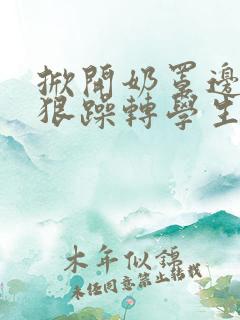 掀開奶罩邊
狠躁轉學生
木年似錦
未經同意禁止轉載